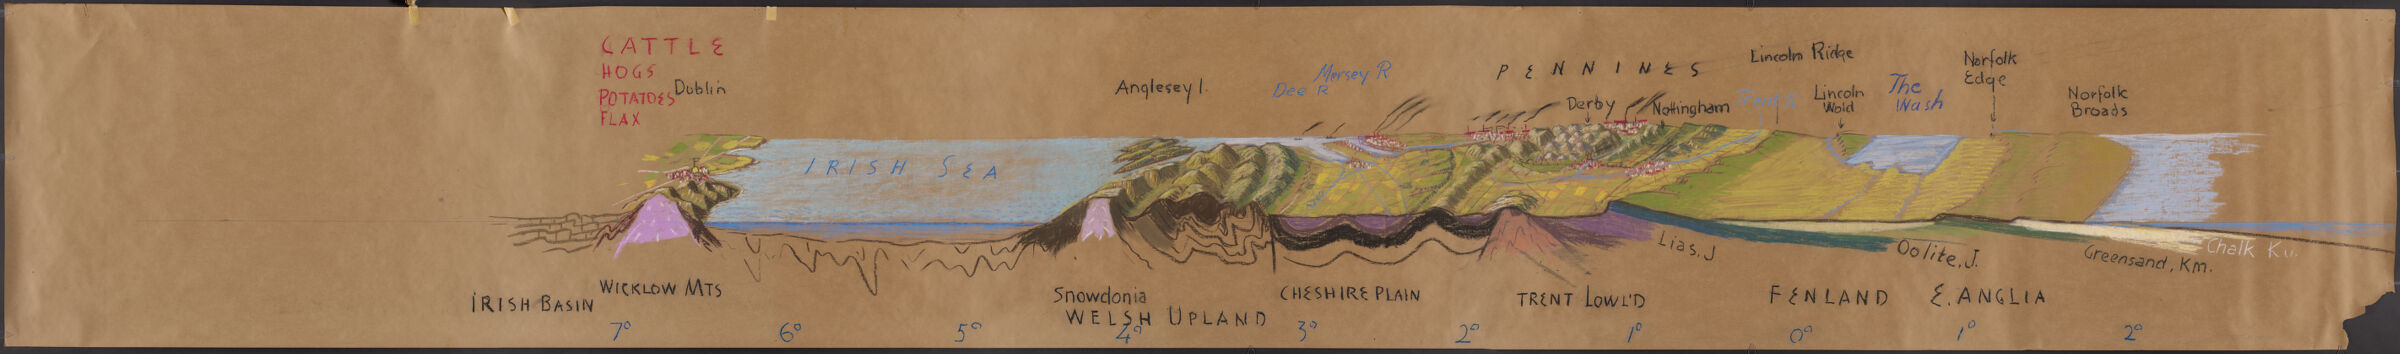 CATTLE
HOGS
POTATOES
FLAX
Dublin
IRISH SEA
Anglesey I.
Dee R
Mersey R
PENNINES
Derby
Nottingham
Trent R
Lincoln Ridge
Lincoln
Wold
The
Wash
Norfolk
Edge
Norfolk
Broads
Lias, J
Oolite, J.
Greensand, Km.
Chalk Ku.
IRISH BASIN
WICKLOW MTS
Snowdonia
WELSH UPLAND
CHESHIRE PLAIN
TRENT LOWL'D
FENLAND
E. ANGLIA
7° 6° 5° 4° 3° 2° 1° 0° 1° 2°